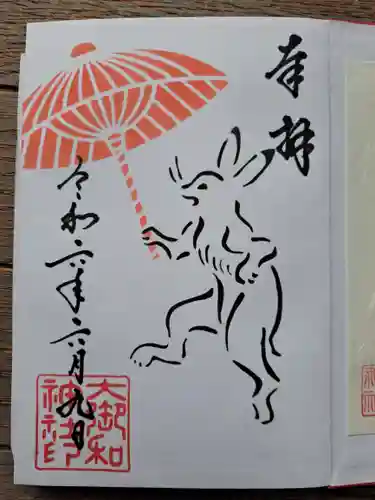 奉拝
令和六年六月九日
大御和
神社印